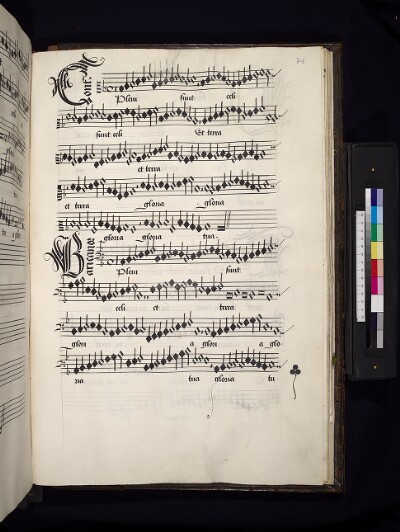 Cont
Pleni sunt celi
sunt celi Et terra
et terra
et terra gloria gloria
gloria gloria tua
Baricanor
Pleni sunt
celi et terra
glori a glori a glo
ria tua gloria tu